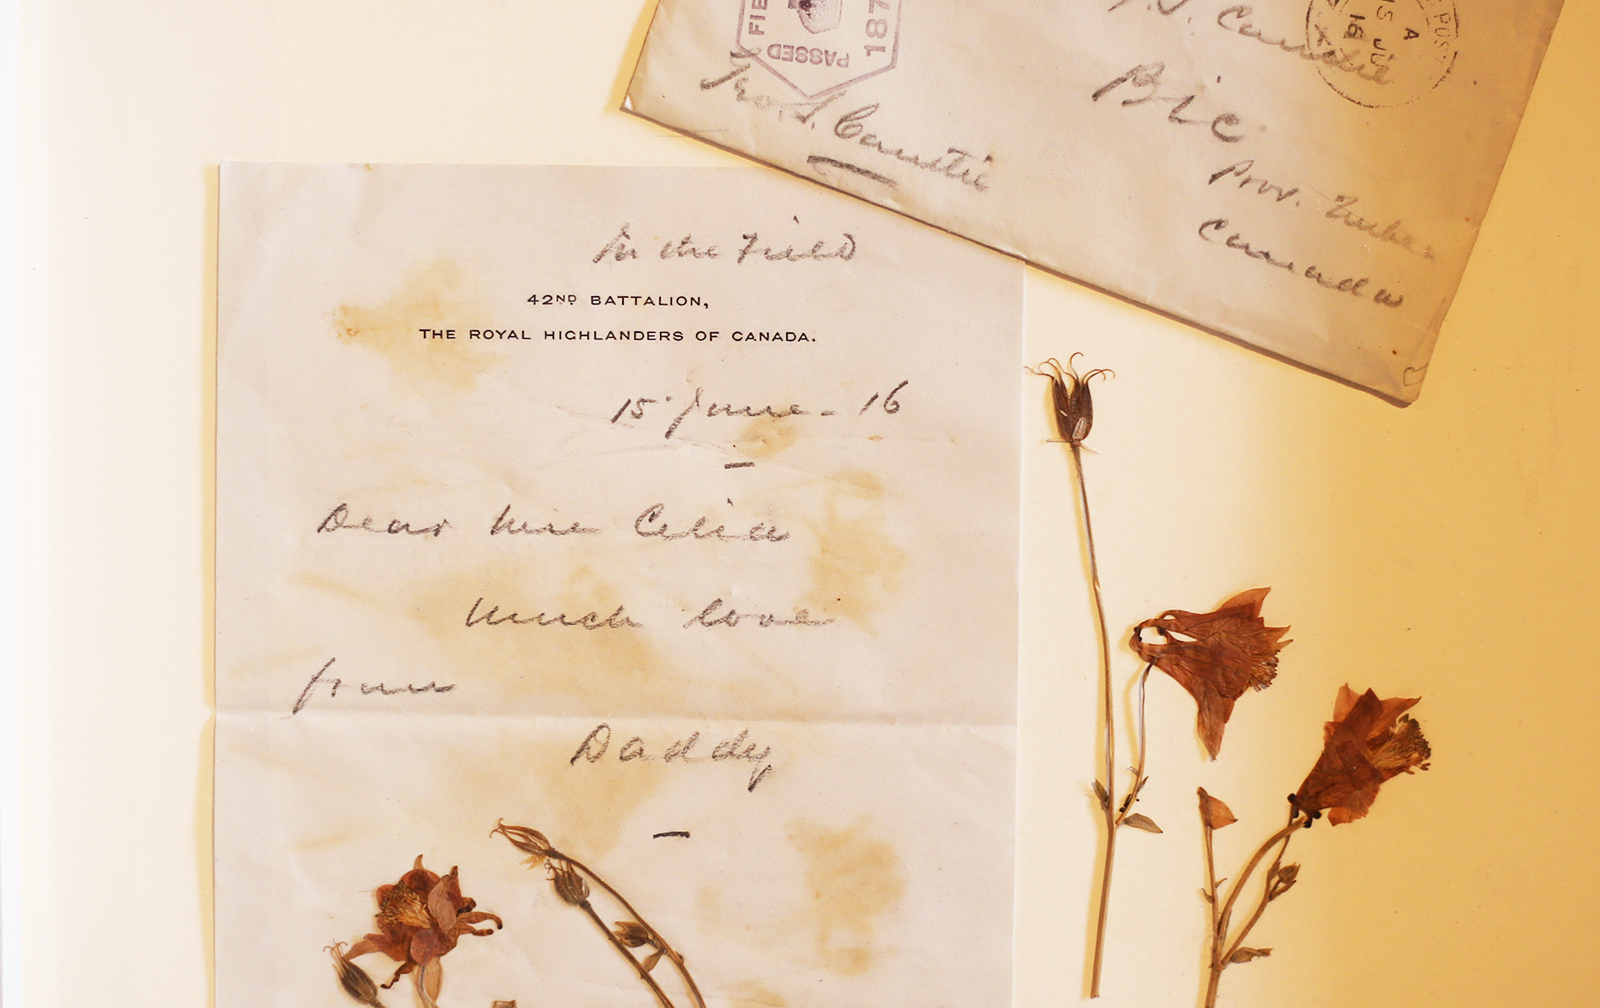 FIE
PASSED
187
15 JU
16
A
POS
Geo. S. Cantlie
S. Cantlie
Bic
Prov. Quebec
Canada
In the Field
42ND BATTALION,
THE ROYAL HIGHLANDERS OF CANADA.
15 June - 16
Dear wee Celia
much love
from
Daddy